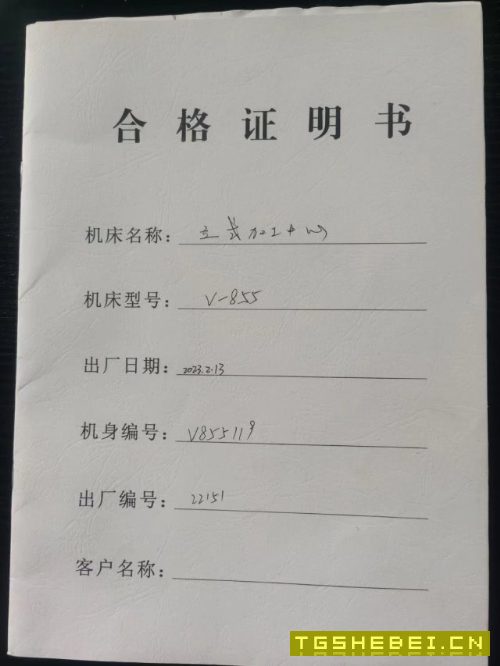 合格证明书
机床名称：立式加工中心
机床型号：V-855
出厂日期：2023.2.13
机身编号：V855119
出厂编号：22151
客户名称：
TGSHEBEI.CN